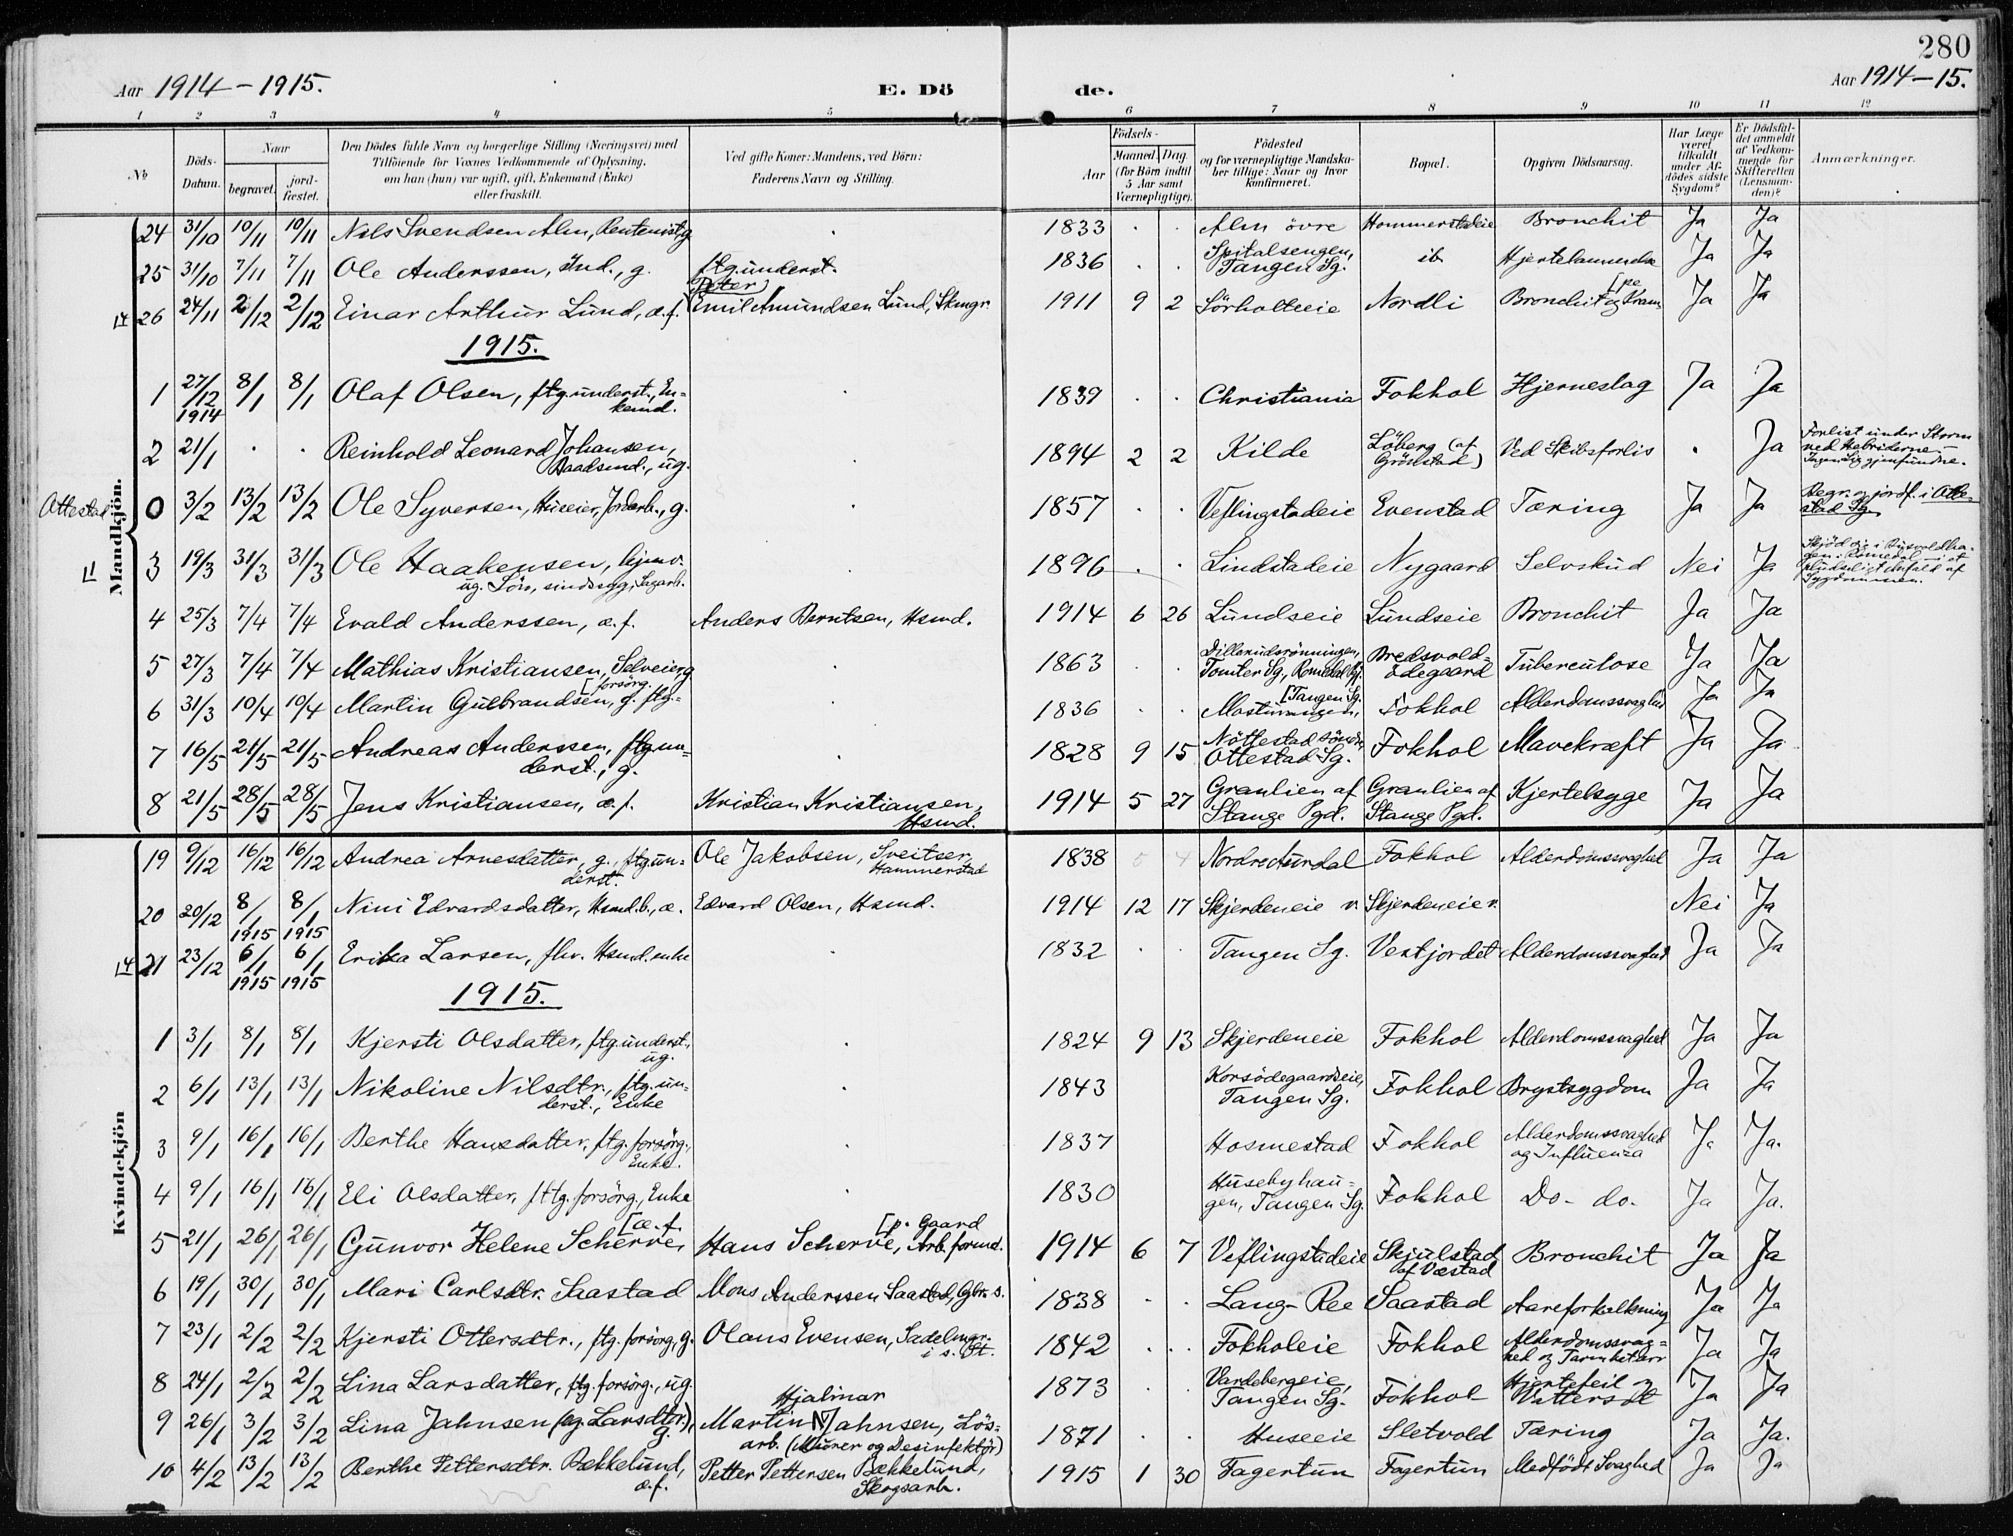 280
Aar 1914 – 1915. E. Dö de. Aar 1914 – 15.
1 2 3 4 5 6 7 8 9 10 11 12
No Döds-Datum. Naar begravet. jord-fæstet. Den Dödes fulde Navn og borgerlige Stilling (Næringsvei) med Tilföiende for Voxnes Vedkommende af Oplysning, om han (hun) var ugift, gift, Enkemand (Enke) eller fraskilt. Ved gifte Koner: Mandens, ved Börn: Faderens Navn og Stilling. Födsels- Aar Maaned. Dag. (for Börn indtil 5 Aar samt Værnepligtige). Födested og for værnepligtige Mandskaber tillige: Naar og hvor konfirmeret. Bopæl. Opgiven Dödsaarsag. Har Læge været tilkaldt under Afdödes sidste Sygdom? Er Dödsfaldet anmeldt af Vedkommende for Skifteretten (Lensmanden)? Anmærkninger.
Mandkjön.
24 31/10 10/11 10/11 Nils Svendsen Alm, Rentenist, g. 1833 Alm övre Hommerstadeie Bronchit Ja Ja
25 31/10 7/11 7/11 Ole Anderssen, Ind., g. ftg. underst. 1836 Spitalsengen, Tangen Sg. ib Hjertelammelse Ja Ja
26 24/11 2/12 2/12 Einar Arthur Lund, æ.f. (Peter) Emil Amundsen Lund, Skmgr. 1911 9 2 Sörholteie Nordli Bronchit og Krampe Ja Ja
1915.
1 27/12 1914 8/1 8/1 Olaf Olsen, ftg. underst., Enkemd. 1839 Christiania Fokhol Hjerneslag Ja Ja
2 21/1 Reinhold Leonard Johansen, Baadsmd., ug. 1894 2 2 Kilde Löberg (af Grönstad) Ved Skibsforlis Ja Forlist under Storm ved Hebriderne – Ingen Lig gjenfundne.
Ottestad 0 3/2 13/2 13/2 Ole Syversen, Huseier, Jordarb., g. 1857 Veflingstadeie Evenstad Tæring Ja Ja Begr. og jordf. i Ottestad Sg.
3 19/3 31/3 31/3 Ole Haakensen, hjmv. ug. Sön, sindssyg, Sagarb. 1896 Lindstadeie Nygaard Selvskud Nei Ja Skjöd sig i
4 25/3 7/4 7/4 Evald Anderssen, æ.f. Anders Berntsen, Hsmd. 1914 6 26 Lundseie Lundseie Bronchit Ja Ja
5 27/3 7/4 7/4 Mathias Kristiansen, Selveier, g 1863 Dillerudsrönningen, Tomter Sg., Romedal Pgd. Bredsvold-ödegaard Tuberculose Ja Ja
6 31/3 10/4 10/4 Martin Gulbrandsen, g. ftg. forsörg. 1836 [Tangen Sg. Fokhol Alderdomssvaghed Ja Ja
7 16/5 21/5 21/5 Andreas Anderssen, ftg. underst., g. 1828 9 15 Nöttestad söndre, Ottestad Sg. Fokhol Mavekræft Ja Ja
8 21/5 28/5 28/5 Jens Kristiansen, æ.f. Kristian Kristiansen, Hsmd. 1914 5 27 Granlien af Stange Pgd. Granlien af Stange Pgd. Kjertelsyge Ja Ja
Kvindekjön
19 9/12 16/12 16/12 Andrea Arnesdatter, g., ftg. underst. Ole Jakobsen, Sveitser, Hammerstad 1838 Nordre Aurdal Fokhol Alderdomssvaghed Ja Ja
20 20/12 8/1 1915 8/1 1915 Nini Edvardsdatter, Hsmd.b., æ. Edvard Olsen, Hsmd. 1914 12 17 Skjerdeneie v. Skjerdeneie v. Nei Ja
21 23/12 6/1 1915 6/1 1915 Erika Larsen, fhv. Hsmd. enke 1832 Tangen Sg. Vestjordet Alderdomssvaghed Ja Ja
1915.
1 3/1 8/1 8/1 Kjersti Olsdatter, ftg. underst., ug. 1824 9 13 Skjerdeneie Fokhol Alderdomssvaghed Ja Ja
2 6/1 13/1 13/1 Nikoline Nilsdtr., ftg. underst., Enke 1843 Korsödegaardseie, Tangen Sg. Fokhol Brystsygdom Ja Ja
3 9/1 16/1 16/1 Berthe Hansdatter, ftg. forsörg., Enke. 1837 Hosmestad Fokhol Alderdomssvaghed og Influenza Ja Ja.
4 9/1 16/1 16/1 Eli Olsdatter, ftg. forsörg., Enke 1830 Husebyhaugen, Tangen Sg. Fokhol Do- do- Ja Ja.
5 21/1 26/1 26/1 Gunvor Helene Scherve, [æ.f. Hans Scherve, Arb.formd. [p. Gaard 1914 6 7 Veflingstadeie Skjulstad af Væstad Bronchit Ja Ja
6 19/1 30/1 30/1 Mari Carlsdtr. Saastad Mons Anderssen Saastad, Gbr. s. 1838 Lang-Ree Saastad Aareforkalkning Ja Ja
7 23/1 2/2 2/2 Kjersti Ottersdtr., ftg. forsörg., g. Olaus Evensen, Sadelmgr. i s. St. 1842 Fokholeie Fokhol Alderdomssvaghed og Tarmkatarr Ja Ja
8 24/1 2/2 2/2 Lina Larsdatter, ftg. forsörg., ug. 1873 Vardebergeie, Tangen Sg. Fokhol Hjertefeil og Vattersot Ja Ja
9 26/1 3/2 3/2 Lina Jahnsen (eg. Larsdtr.), g. Martin Hjalmar Jahnsen, Lösarb. (Murer og Desinfektör) 1871 Huseeie Sletvold Tæring Ja Ja.
10 4/2 13/2 13/2 Berthe Pettersdtr. Bækkelund, æ.f. Petter Pettersen Bækkelund, Skogsarb. 1915 1 30 Fagertun Fagertun Medfödt Svaghed Ja Ja